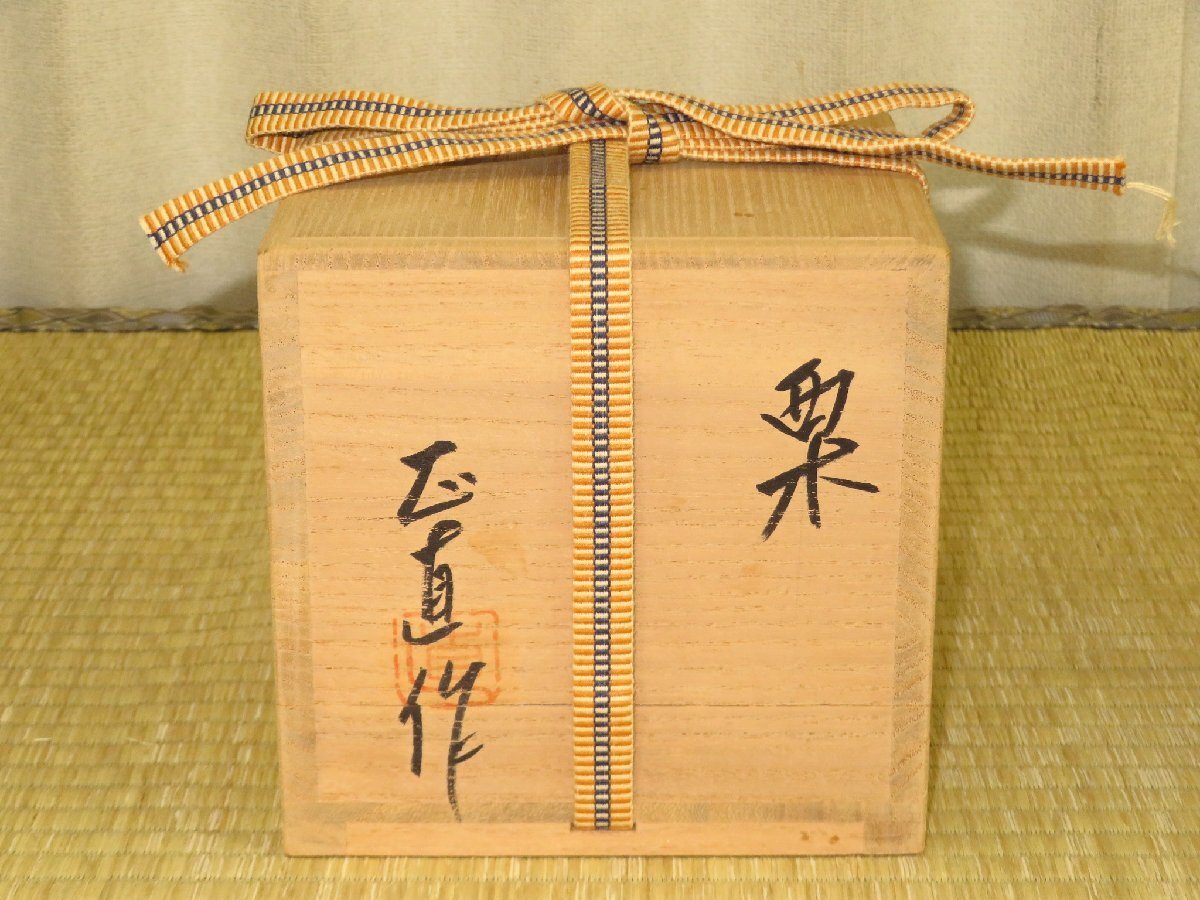 栗
正直作